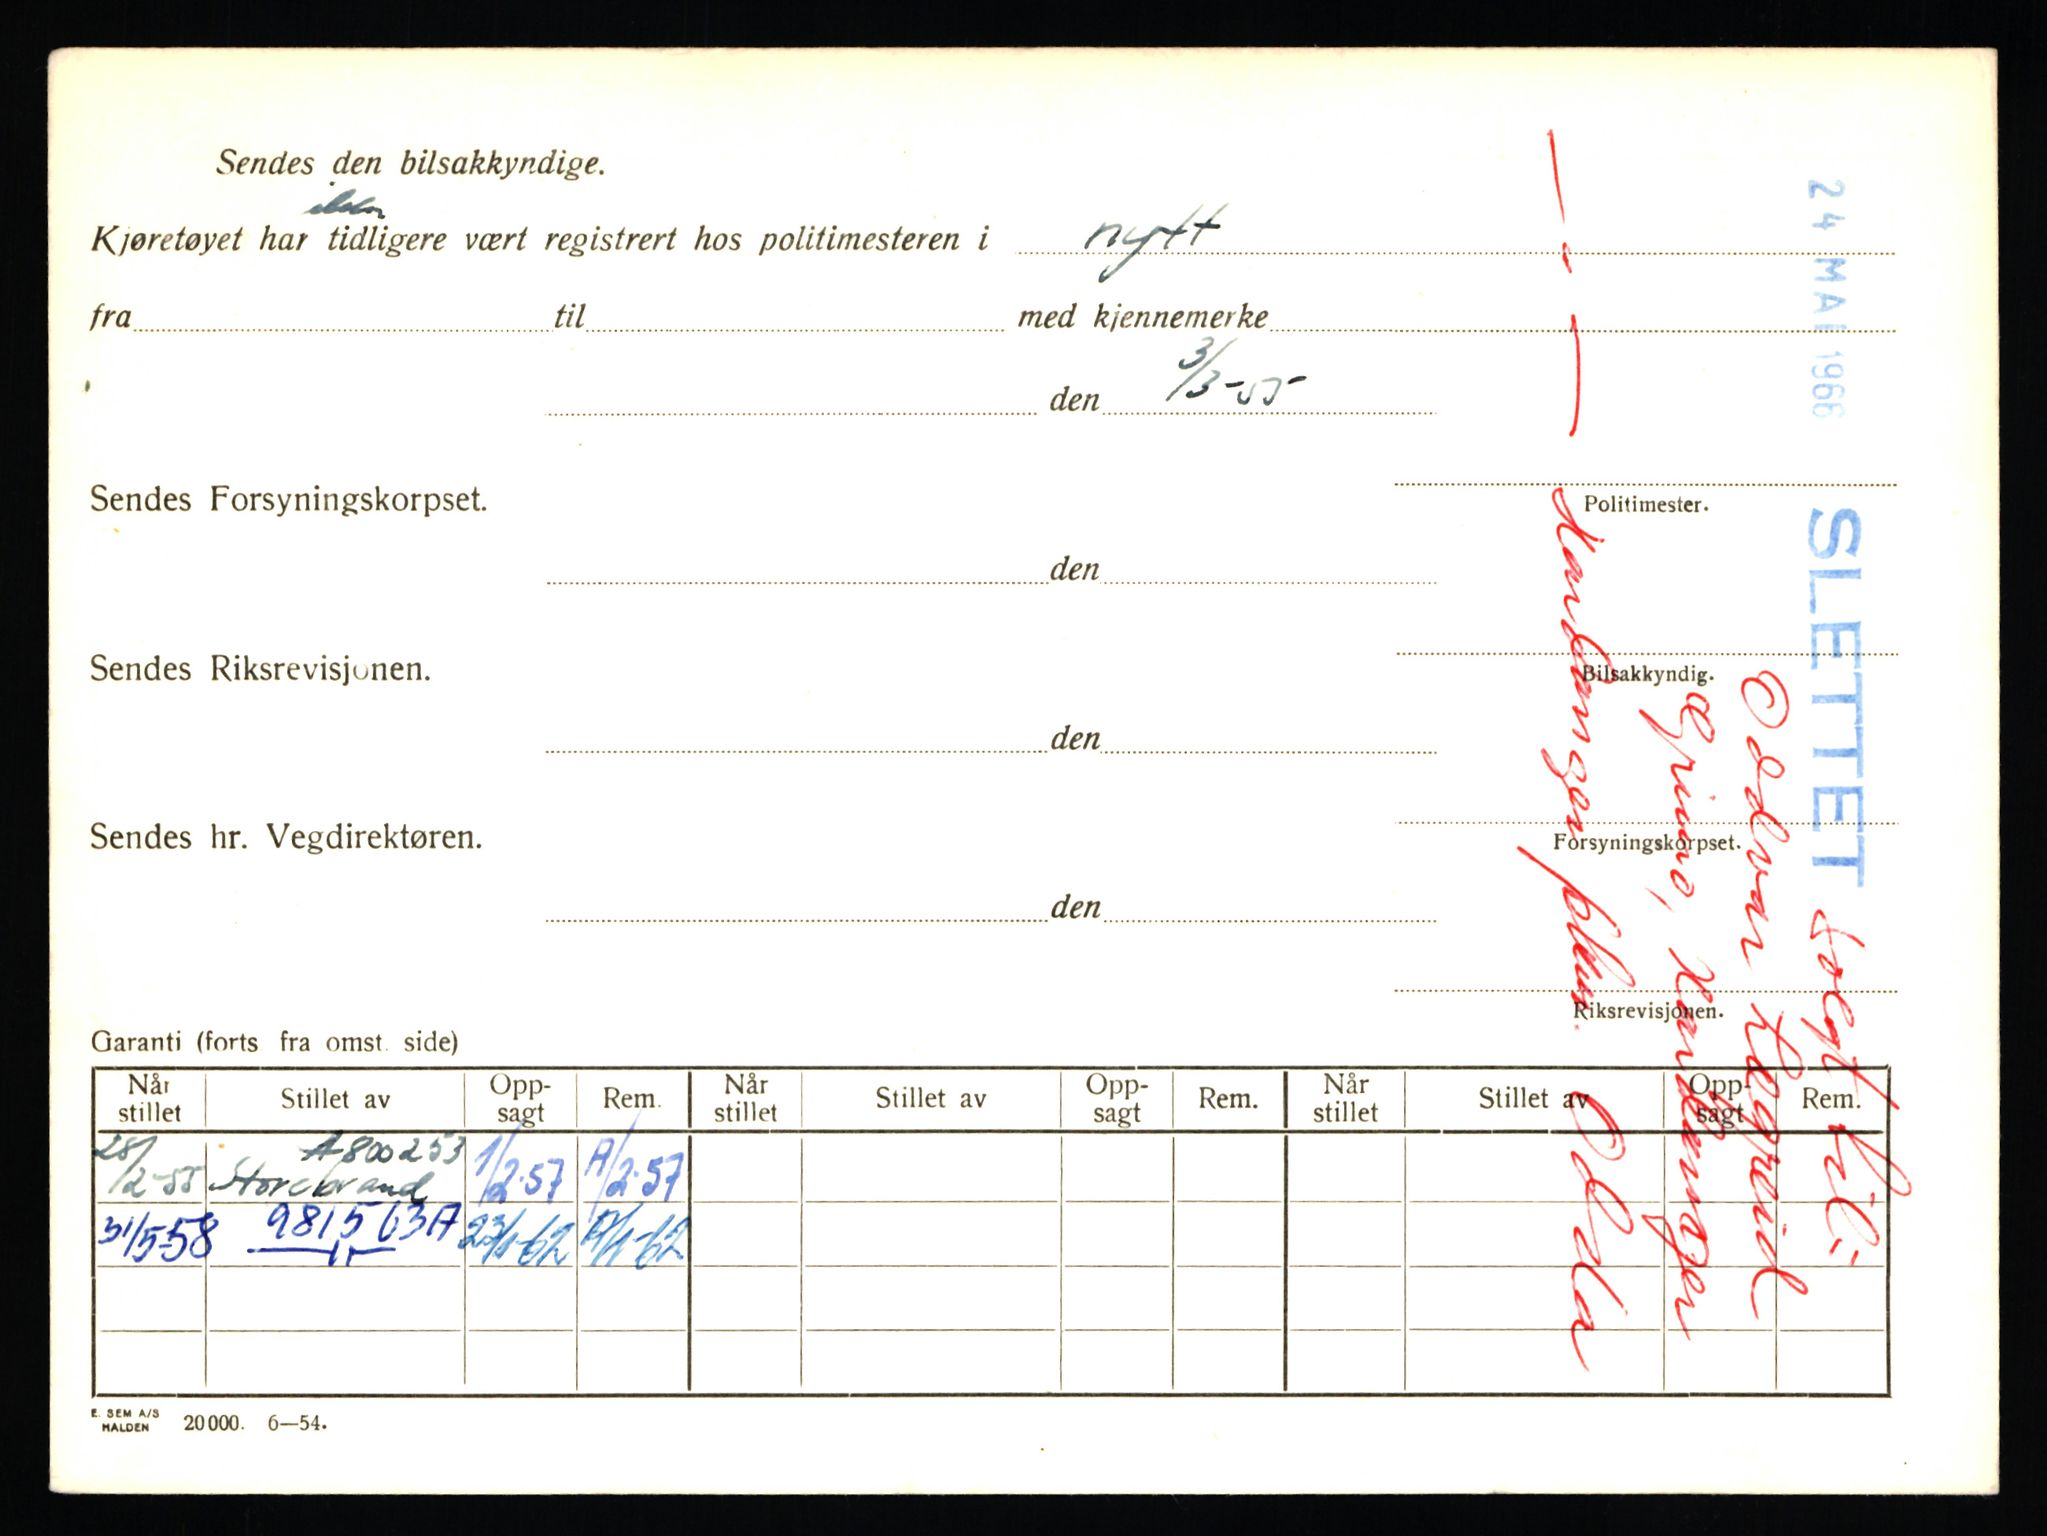 Sendes den bilsakkyndige.
ikke
Kjøretøyet har tidligere vært registrert hos politimesteren i nytt
fra til med kjennemerke
den 3/3-55
Politimester.
Sendes Forsyningskorpset.
den
Bilsakkyndig.
Sendes Riksrevisjonen.
den
Forsyningskorpset.
Sendes hr. Vegdirektøren.
den
Riksrevisjonen.
24 MAI 1966 SLETTET solgt til:
Oddvar Legreid
Grimo, Kvandamger
Oddа
Garanti (forts fra omst. side)
Når stillet Stillet av Opp-sagt Rem. Når stillet Stillet av Opp-sagt Rem. Når stillet Stillet av Opp-sagt Rem.
28/2-55 A800253 Storebrand 1/2-57 A/2-57
31/5-58 981563A 23/1-62 A/1-62
E. SEM A/S
HALDEN
20000. 6—54.